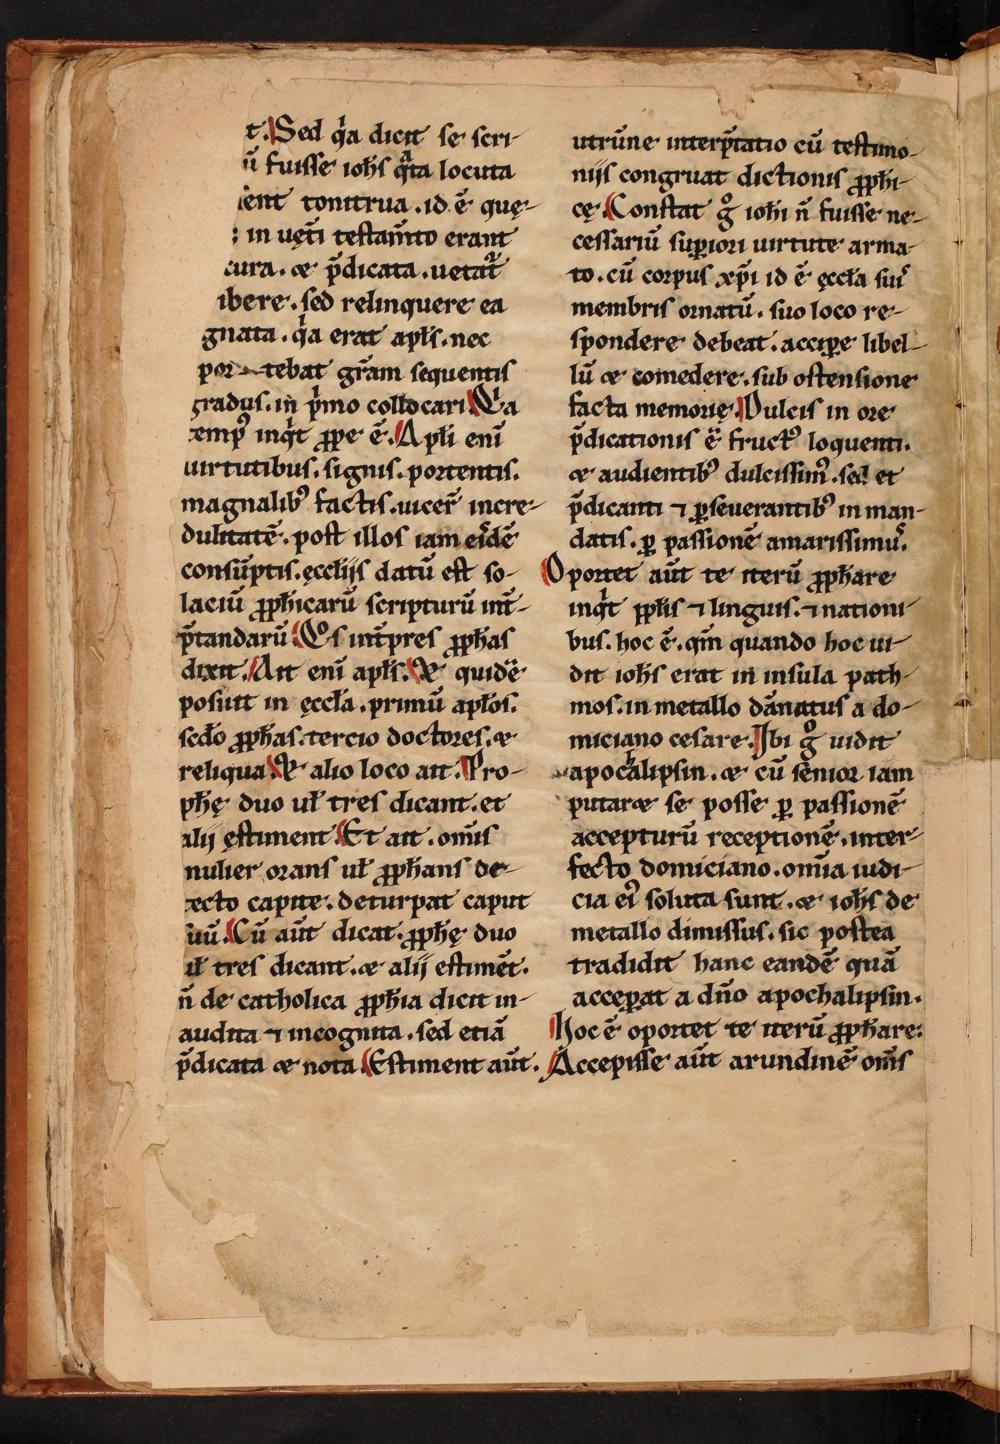 t. Sed qͥa dicit se scri-
ū fuisse ioħs qᷓta locuta
ient tonitrua. id ē̄ quę-
; in uęt̄i testam̄to erant
cura. ⁊ p̄dicata. uetat᷑
ibere. sed relinquere ea
gnata. qͥa erat apl̄s. nec
por tebat gr̄am sequentis
gradus. in p̄mo collocari. Ea
temp᷒ inqͥt ꝓpe ē. Apl̄i enī
uirtutibus. signis. portentis.
magnalib᷒ factis. uicer̄ incre-
dulitatē. post illos iam eidē
consūptis. ęccl̄ijs datū est so-
laciū ꝓph̄icarū scripturū int̄-
p̄tandarū. Es int̄pres ꝓph̄as
dixit. Ait enī apl̄s. Et quidē
posuit in ęccl̄a. primū apl̄os.
sed̄o ꝓph̄as. tercio doctores. ⁊
reliqua. Et alio loco ait. Pro-
phę duo ul̄ tres dicant. et
alij ęstiment. Et ait. om̄is
mulier orans ul̄ ꝓph̄ans de-
tecto capite. deturpat caput
suū. Cū aūt dicat. ꝓph̄ę duo
ul̄ tres dicant. ⁊ alij estimēt.
n̄ de catholica ꝓph̄ia dicit in-
audita ⁊ incognita. sed etiā
p̄dicata ⁊ nota. Estiment aūt.
utrūne interp̄tatio cū testimo-
nijs congruat dictionis ꝓph̄i-
cę. Constat gͦ ioh̄i n̄ fuisse ne-
cessariū suꝑiori uirtute arma-
to. cū corpus xp̄i id ē̄ ęccl̄a suis
membris ornatū. suo loco re-
spondere debeat. acciꝑe libel-
lū ⁊ comedere. sub ostensione
facta memorię. Dulcis in ore
p̄dicationis ē̄ fruct᷒ loquenti.
⁊ audientib᷒ dulcissim᷒. sed et
p̄dicanti ⁊ ꝑseuerantib᷒ in man-
datis. ꝑ passionē amarissimus.
Oportet aūt te iterū ꝓph̄are
inqͥt ppl̄is ⁊ linguis. ⁊ nationi-
bus. hoc ē. qm̄ quando hoc ui-
dit ioh̄s erat in insula path-
mos. in metallo dānatus a do-
miciano cesare. Ibi gͦ uidit
apocalipsin. ⁊ cū senior iam
putaret se posse ꝑ passionē
accepturū receptionē. inter-
fecto domiciano. om̄ia iudi-
cia ei᷒ soluta sunt. ⁊ ioh̄s de
metallo dimissus. sic postea
tradidit hanc eandē quā
acceꝑat a dn̄o apochalipsin.
Hoc ē oportet te iterū ꝓph̄are.
Accepisse aūt arundinē om̄s